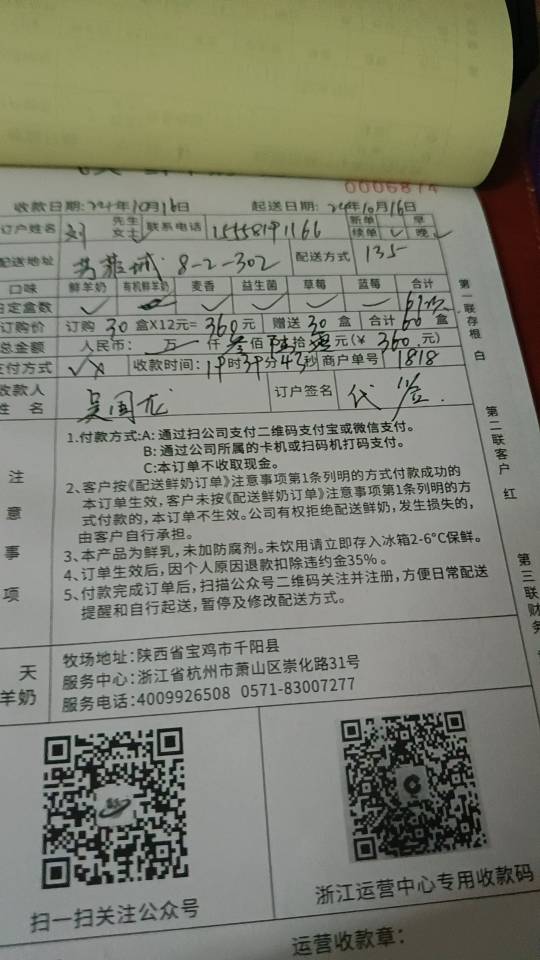 0006874
收款日期:24年10月16日 起送日期:24年10月16日
订户姓名 刘 先生 女士 联系电话 15558191166 新单 续单 ✓ 早 晚 ✓
配送地址 8-2-302 配送方式 135
口味 鲜羊奶 有机鲜羊奶 麦香 益生菌 草莓 蓝莓 合计
定盒数
订购价 订购 30 盒X12元= 360 元 赠送 30 盒 合计 60 盒
总金额 人民币: 万 仟 叁 佰 陆 拾 零 元(¥ 360 元)
支付方式 收款时间: 19 时 39 分 43 秒 商户单号 1818
收款人 姓名 吴国龙 订户签名 代签
注意事项
1.付款方式:A: 通过扫公司支付二维码支付宝或微信支付。
B: 通过公司所属的卡机或扫码机打码支付。
C:本订单不收取现金。
2、客户按《配送鲜奶订单》注意事项第1条列明的方式付款成功的
本订单生效,客户未按《配送鲜奶订单》注意事项第1条列明的方
式付款的,本订单不生效。公司有权拒绝配送鲜奶,发生损失的,
由客户自行承担。
3、本产品为鲜乳,未加防腐剂。未饮用请立即存入冰箱2-6°C保鲜。
4、订单生效后,因个人原因退款扣除违约金35%。
5、付款完成订单后,扫描公众号二维码关注并注册,方便日常配送
提醒和自行起送,暂停及修改配送方式。
第一联存根 白
第二联客户 红
第三联财务
天
羊奶
牧场地址:陕西省宝鸡市千阳县
服务中心:浙江省杭州市萧山区崇化路31号
服务电话:4009926508 0571-83007277
扫一扫关注公众号
浙江运营中心专用收款码
运营收款章: